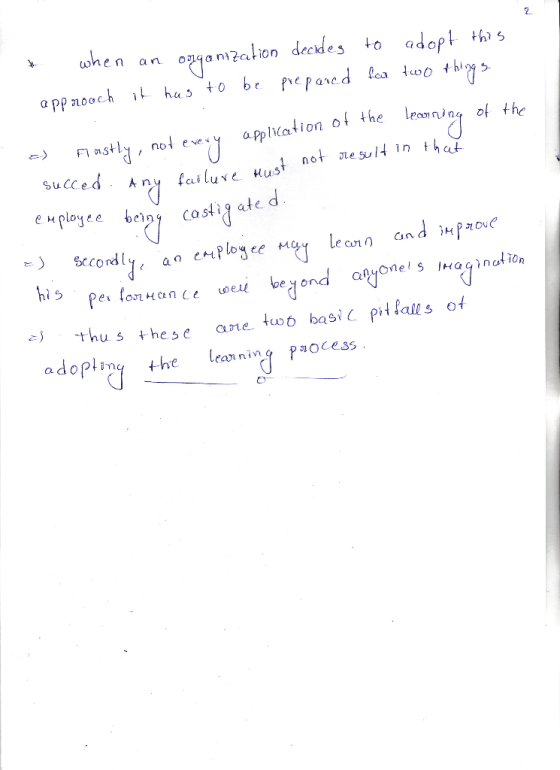 2
* when an organization decides to adopt this
approach it has to be prepared for two things
=> Firstly, not every application of the learning of the
succed. Any failure must not result in that
employee being castigated.
=> secondly, an employee may learn and improve
his performance well beyond anyone's imagination
=> thus these are two basic pitfalls of
adopting the learning process.